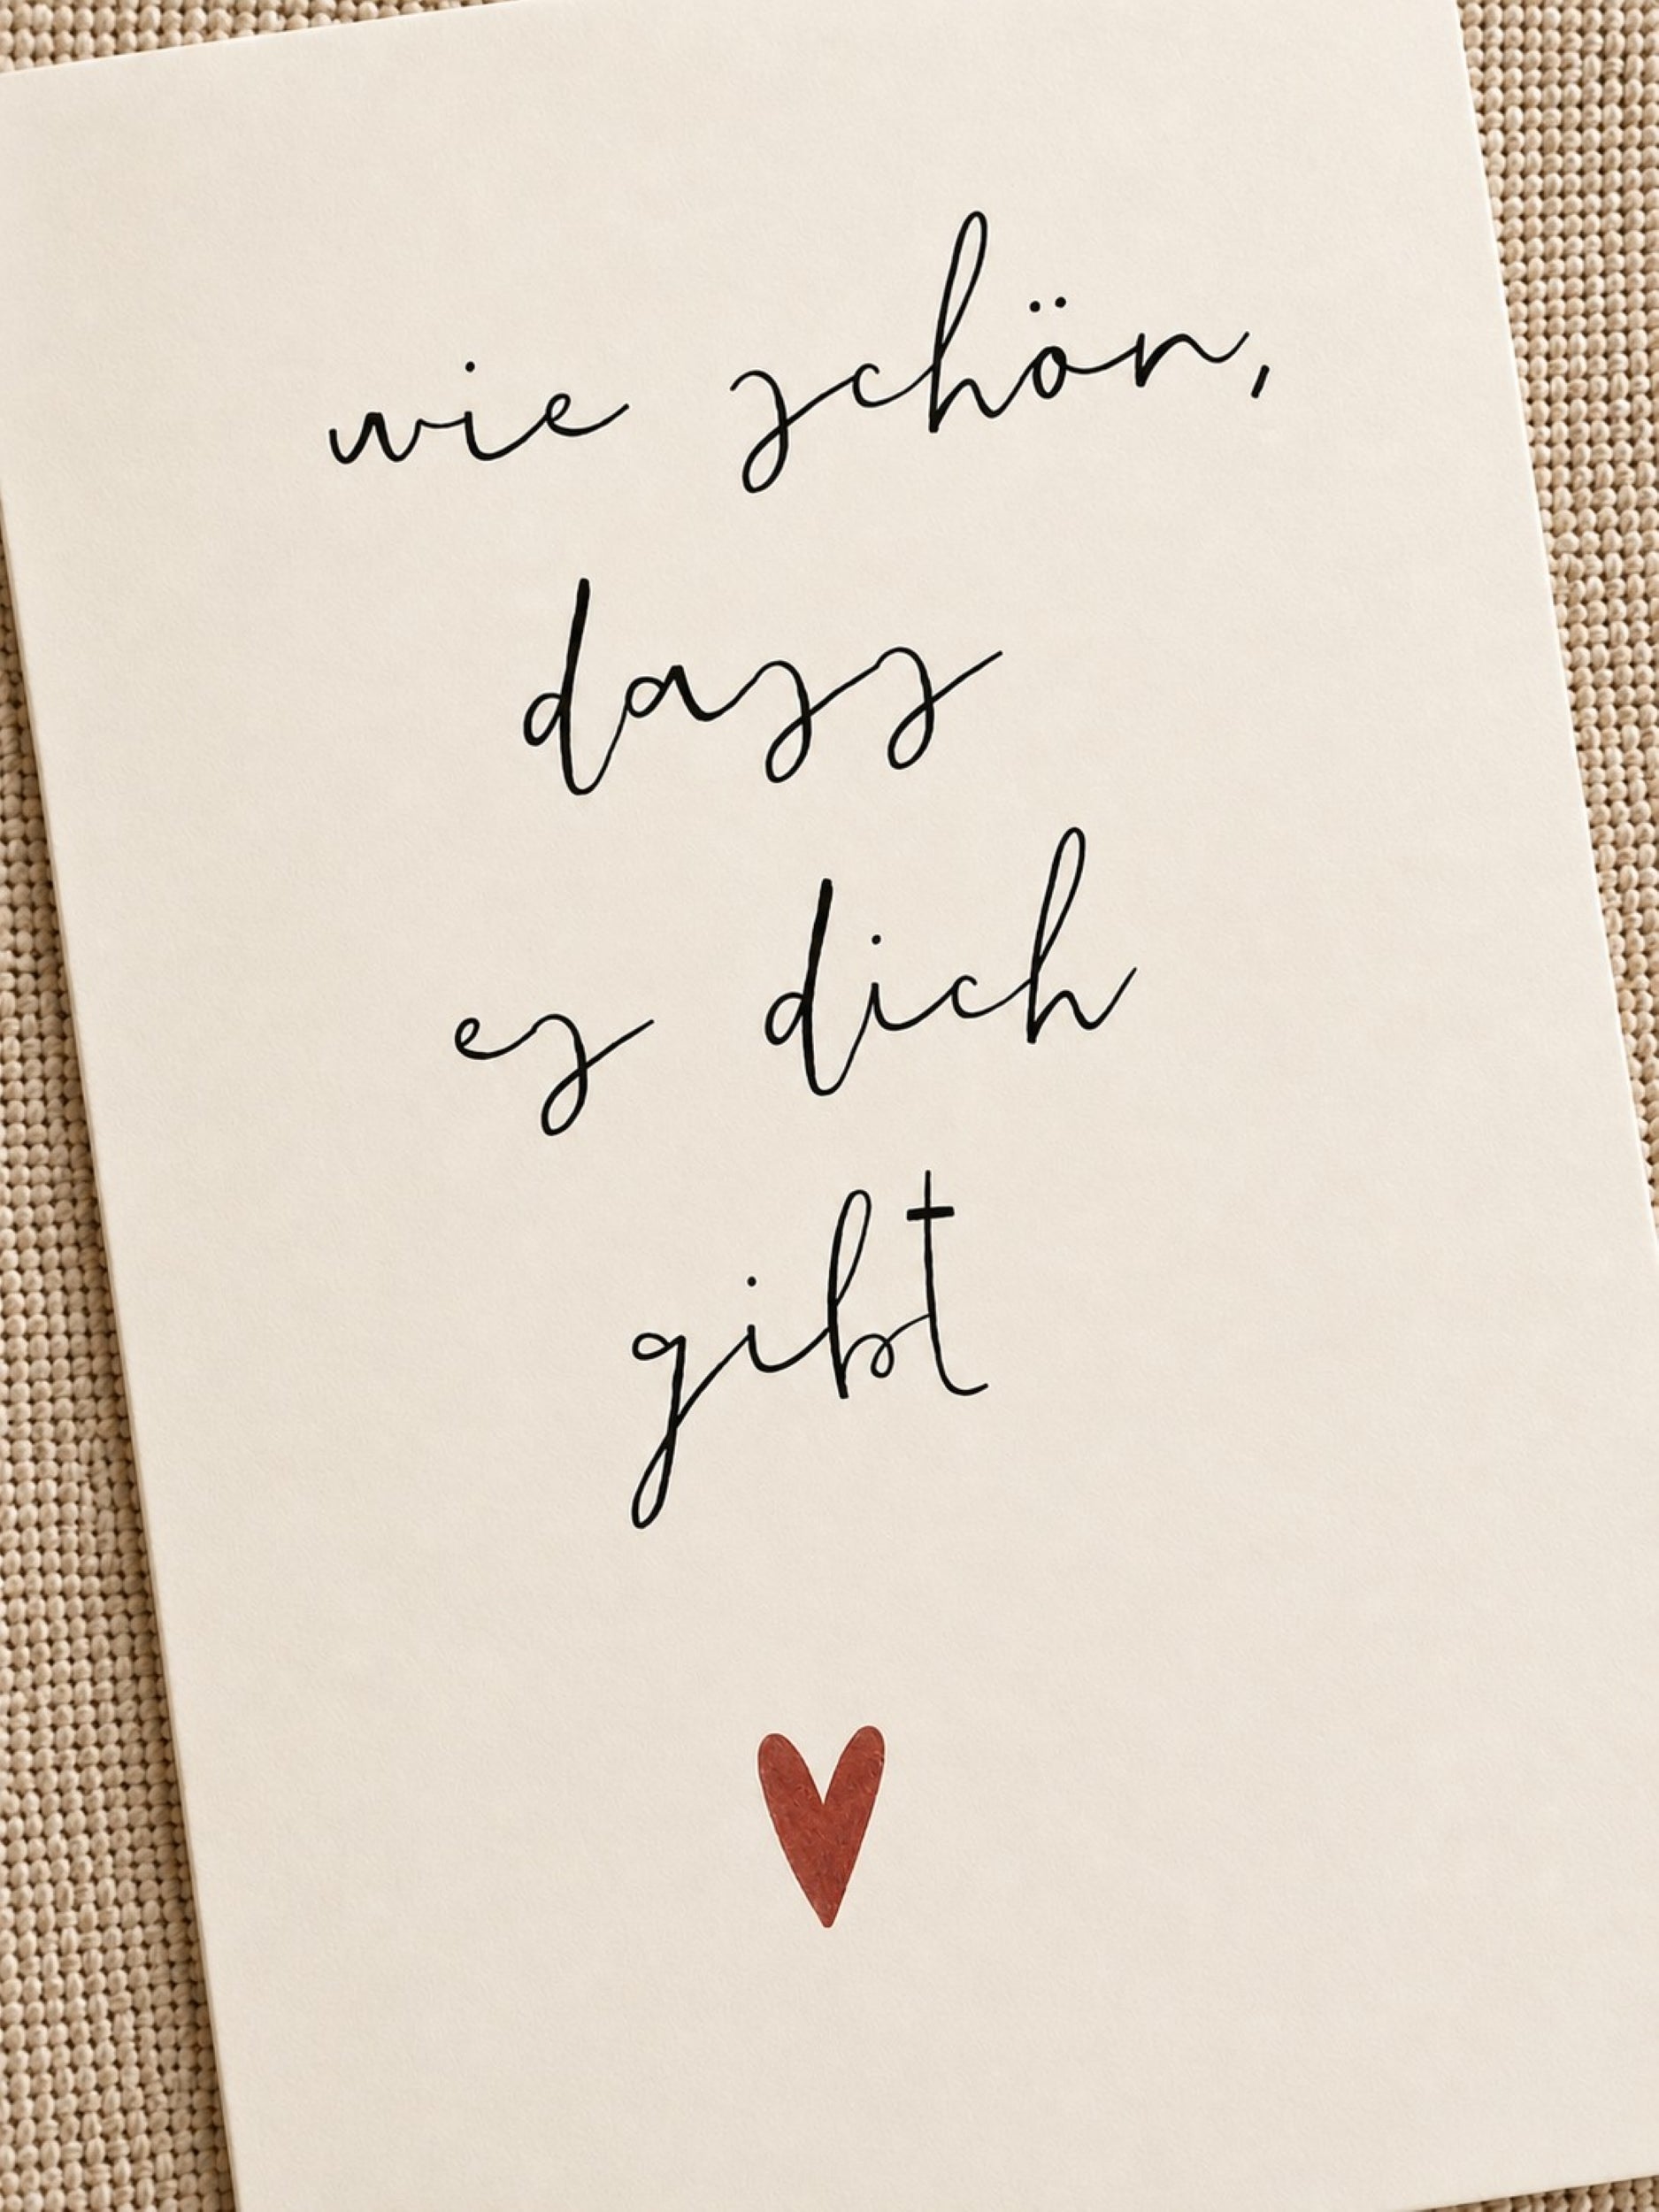 wie schön,
dass
es dich
gibt